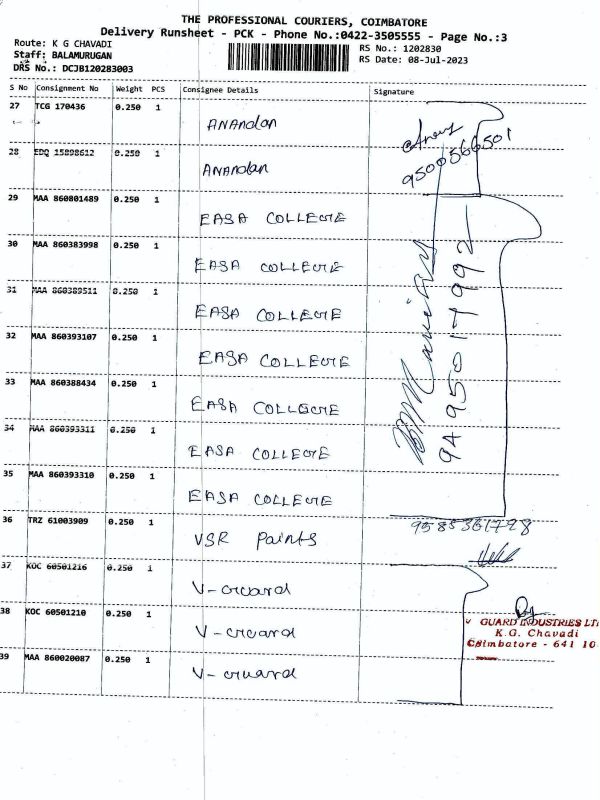 THE PROFESSIONAL COURIERS, COIMBATORE
Delivery Runsheet - PCK - Phone No.:0422-3505555 - Page No.:3
Route: K G CHAVADI
Staff: BALAMURUGAN
DRS No.: DCJB120283003
RS No.: 1202830
RS Date: 08-Jul-2023
S No Consignment No Weight PCS Consignee Details Signature
27 TCG 170436 0.250 1
ANANdAN
9500566501
28 EDQ 15898612 0.250 1
ANANdAN
29 MAA 860801489 0.250 1
EASA COLLEGE
30 MAA 860383998 0.250 1
EASA COLLEGE
31 MAA 860389511 0.250 1
EASA COLLEGE
32 MAA 860393107 0.250 1
EASA COLLEGE
33 MAA 860388434 0.250 1
EASA COLLEGE
34 MAA 860393311 0.250 1
EASA COLLEGE
35 MAA 860393310 0.250 1
EASA COLLEGE
36 TRZ 61003909 0.250 1
VSR Paints
9585361728
37 KOC 60501216 0.250 1
V-Guard
38 KOC 60501210 0.250 1
V-Guard
V GUARD INDUSTRIES LT
K.G. Chavadi
Coimbatore - 641 10
39 MAA 860020087 0.250 1
V-Guard